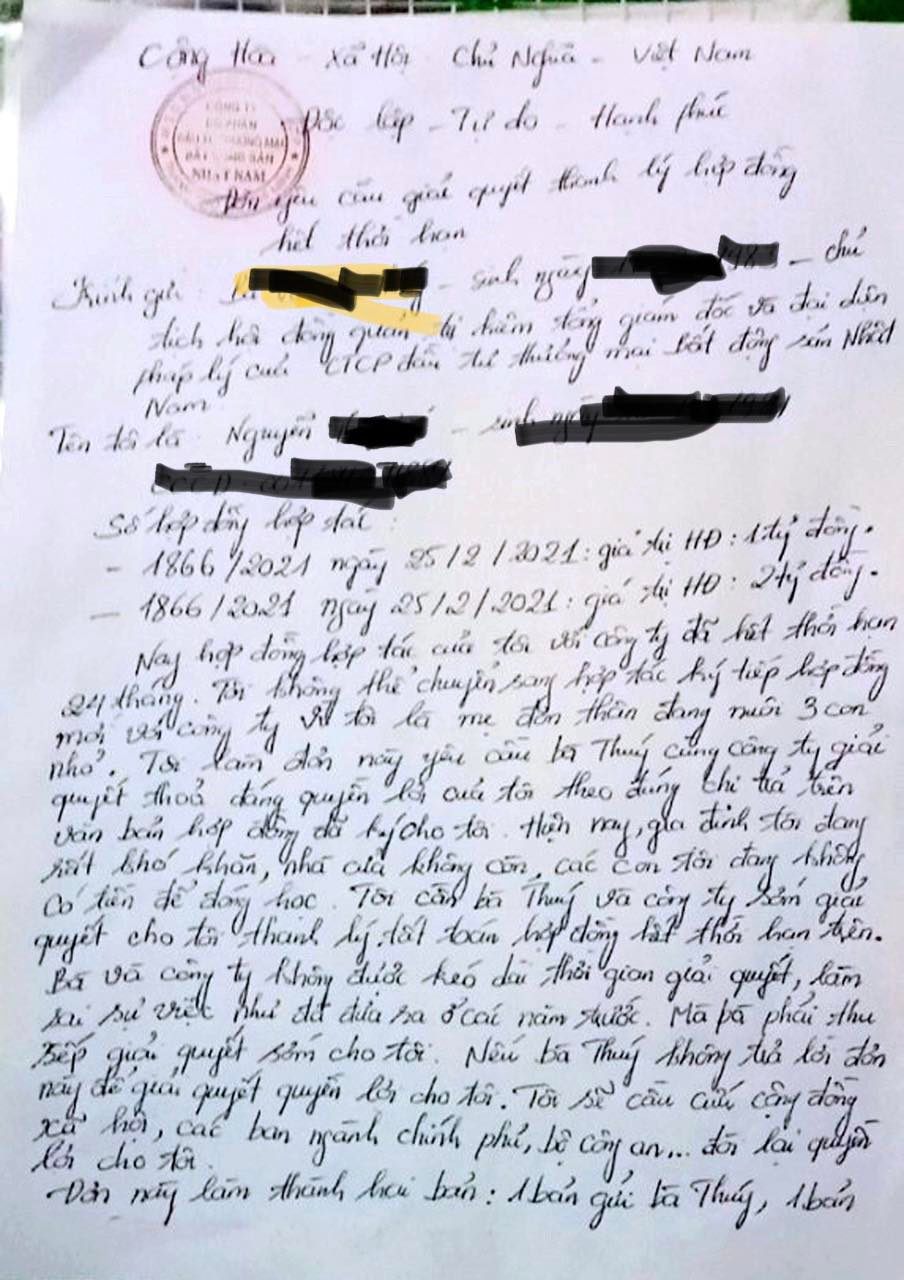 Cộng Hòa - Xã Hội - Chủ Nghĩa - Việt Nam
Độc lập - Tự do - Hạnh phúc
CÔNG TY
CỔ PHẦN
BẤT ĐỘNG SẢN
NHẬT NAM
Đơn yêu cầu giải quyết thanh lý hợp đồng
hết thời hạn
Kính gửi: - sinh ngày - chủ
tịch hội đồng quản trị kiêm tổng giám đốc và đại diện
pháp lý của CTCP đầu tư thương mại bất động sản Nhật
Nam.
Tên tôi là: Nguyễn - sinh ngày
Số hợp đồng hợp tác:
- 1866/2021 ngày 25/2/2021: giá trị HĐ: 1 tỷ đồng.
- 1866/2021 ngày 25/2/2021: giá trị HĐ: 2 tỷ đồng.
Nay hợp đồng hợp tác của tôi với công ty đã hết thời hạn
24 tháng. Tôi không thể chuyển sang hợp tác ký tiếp hợp đồng
mới với công ty vì tôi là mẹ đơn thân đang nuôi 3 con
nhỏ. Tôi làm đơn này yêu cầu bà Thuý cùng công ty giải
quyết thoả đáng quyền lợi của tôi theo đúng chi trả trên
văn bản hợp đồng đã ký cho tôi. Hiện nay, gia đình tôi đang
rất khó khăn, nhà cửa không còn, các con tôi đang không
có tiền để đóng học. Tôi cần bà Thuý và công ty sớm giải
quyết cho tôi thanh lý, tất toán hợp đồng hết thời hạn trên.
Bà và công ty không được kéo dài thời gian giải quyết, làm
sai sự việc như đã đưa ra ở các năm trước. Mà bà phải thu
xếp giải quyết sớm cho tôi. Nếu bà Thuý không trả lời đơn
này để giải quyết quyền lợi cho tôi. Tôi sẽ cầu cứu cộng đồng
xã hội, các ban ngành chính phủ, bộ công an... đòi lại quyền
lợi cho tôi.
Đơn này làm thành hai bản: 1 bản gửi bà Thuý, 1 bản